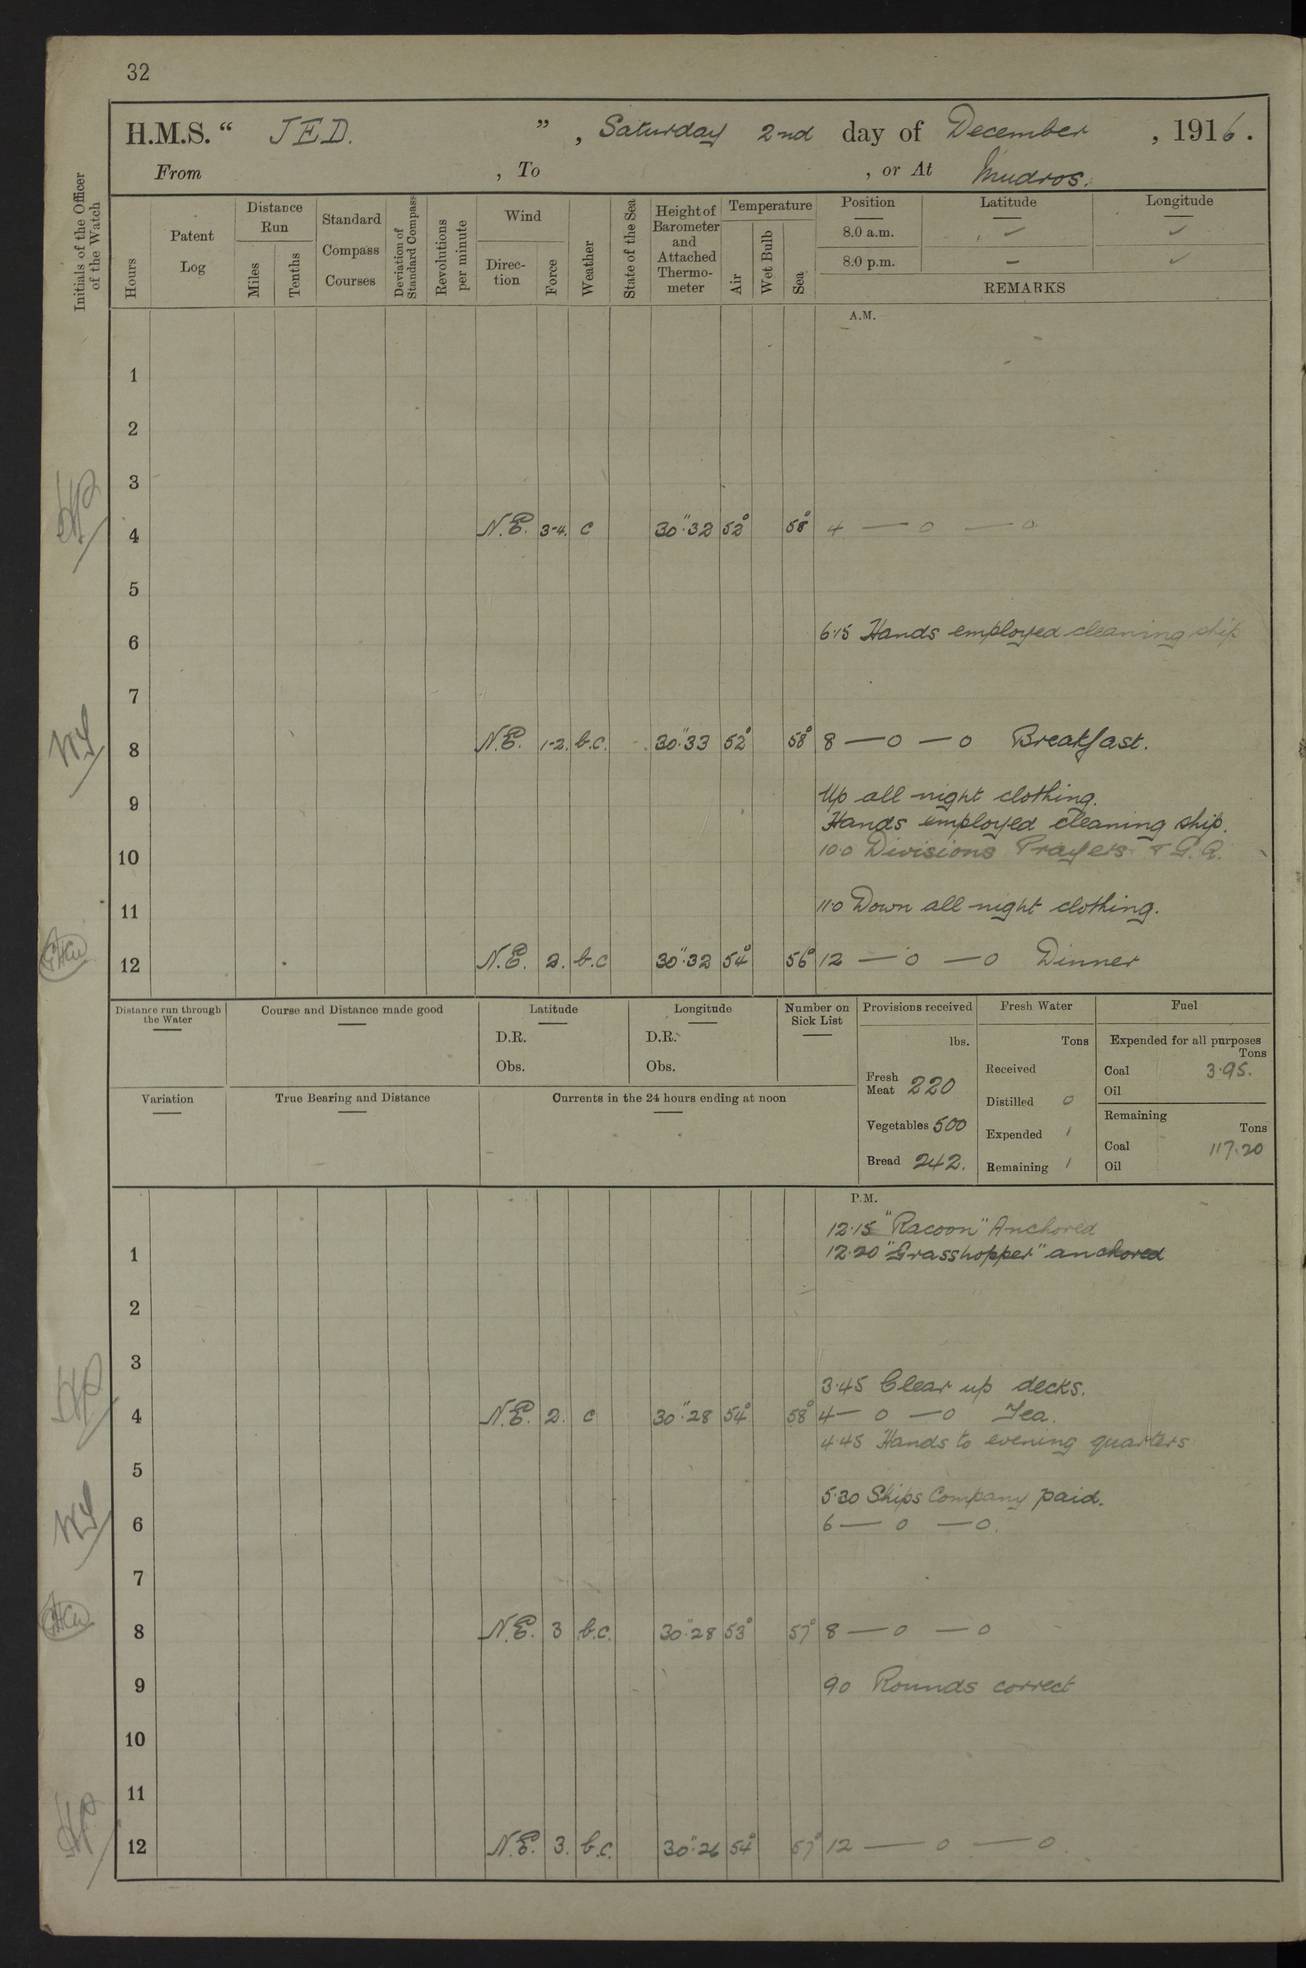 32
H.M.S. " JED. ", Saturday 2nd day of December, 1916.
From , To , or At Mudros.
Initials of the Officer of the Watch
Hours
Patent Log
Distance Run
Miles
Tenths
Standard Compass Courses
Deviation of Standard Compass
Revolutions per minute
Wind
Direction
Force
Weather
State of the Sea
Height of Barometer and Attached Thermo-meter
Temperature
Air
Wet Bulb
Sea
Position Latitude Longitude
8.0 a.m. ✓ ✓
8.0 p.m. – ✓
REMARKS
A.M.
1
2
3
4 N.E. 3-4. c 30".32 52° 58° 4 — 0 — 0
5
6 6.15 Hands employed cleaning ship
7
8 N.E. 1-2. b.c. 30".33 52° 58° 8 — 0 — 0 Breakfast.
9 Up all night clothing.
Hands employed cleaning ship.
10 10.0 Divisions Prayers & G.Q.
11 11.0 Down all night clothing.
12 N.E. 2. b.c 30".32 54° 56° 12 — 0 — 0 Dinner
Distance run through the Water
Course and Distance made good
Latitude
D.R.
Obs.
Longitude
D.R.
Obs.
Number on Sick List
Provisions received
lbs.
Fresh Meat 220
Vegetables 500
Bread 242.
Fresh Water
Tons
Received
Distilled 0
Expended 1
Remaining 1
Fuel
Expended for all purposes
Tons
Coal 3.95.
Oil
Remaining
Tons
Coal 117.20
Oil
Variation
True Bearing and Distance
Currents in the 24 hours ending at noon
P.M.
12.15 "Racoon" Anchored
1 12.20 "Grasshopper" anchored
2
3
3.45 Clear up decks.
4 N.E. 2. c 30".28 54° 58° 4 — 0 — 0 Tea.
4.45 Hands to evening quarters
5
5.30 Ships Company paid.
6 6 — 0 — 0.
7
8 N.E. 3 b.c. 30".28 53° 57° 8 — 0 — 0
9 9.0 Rounds correct
10
11
12 N.E. 3. b.c. 30".26 54° 57° 12 — 0 — 0.